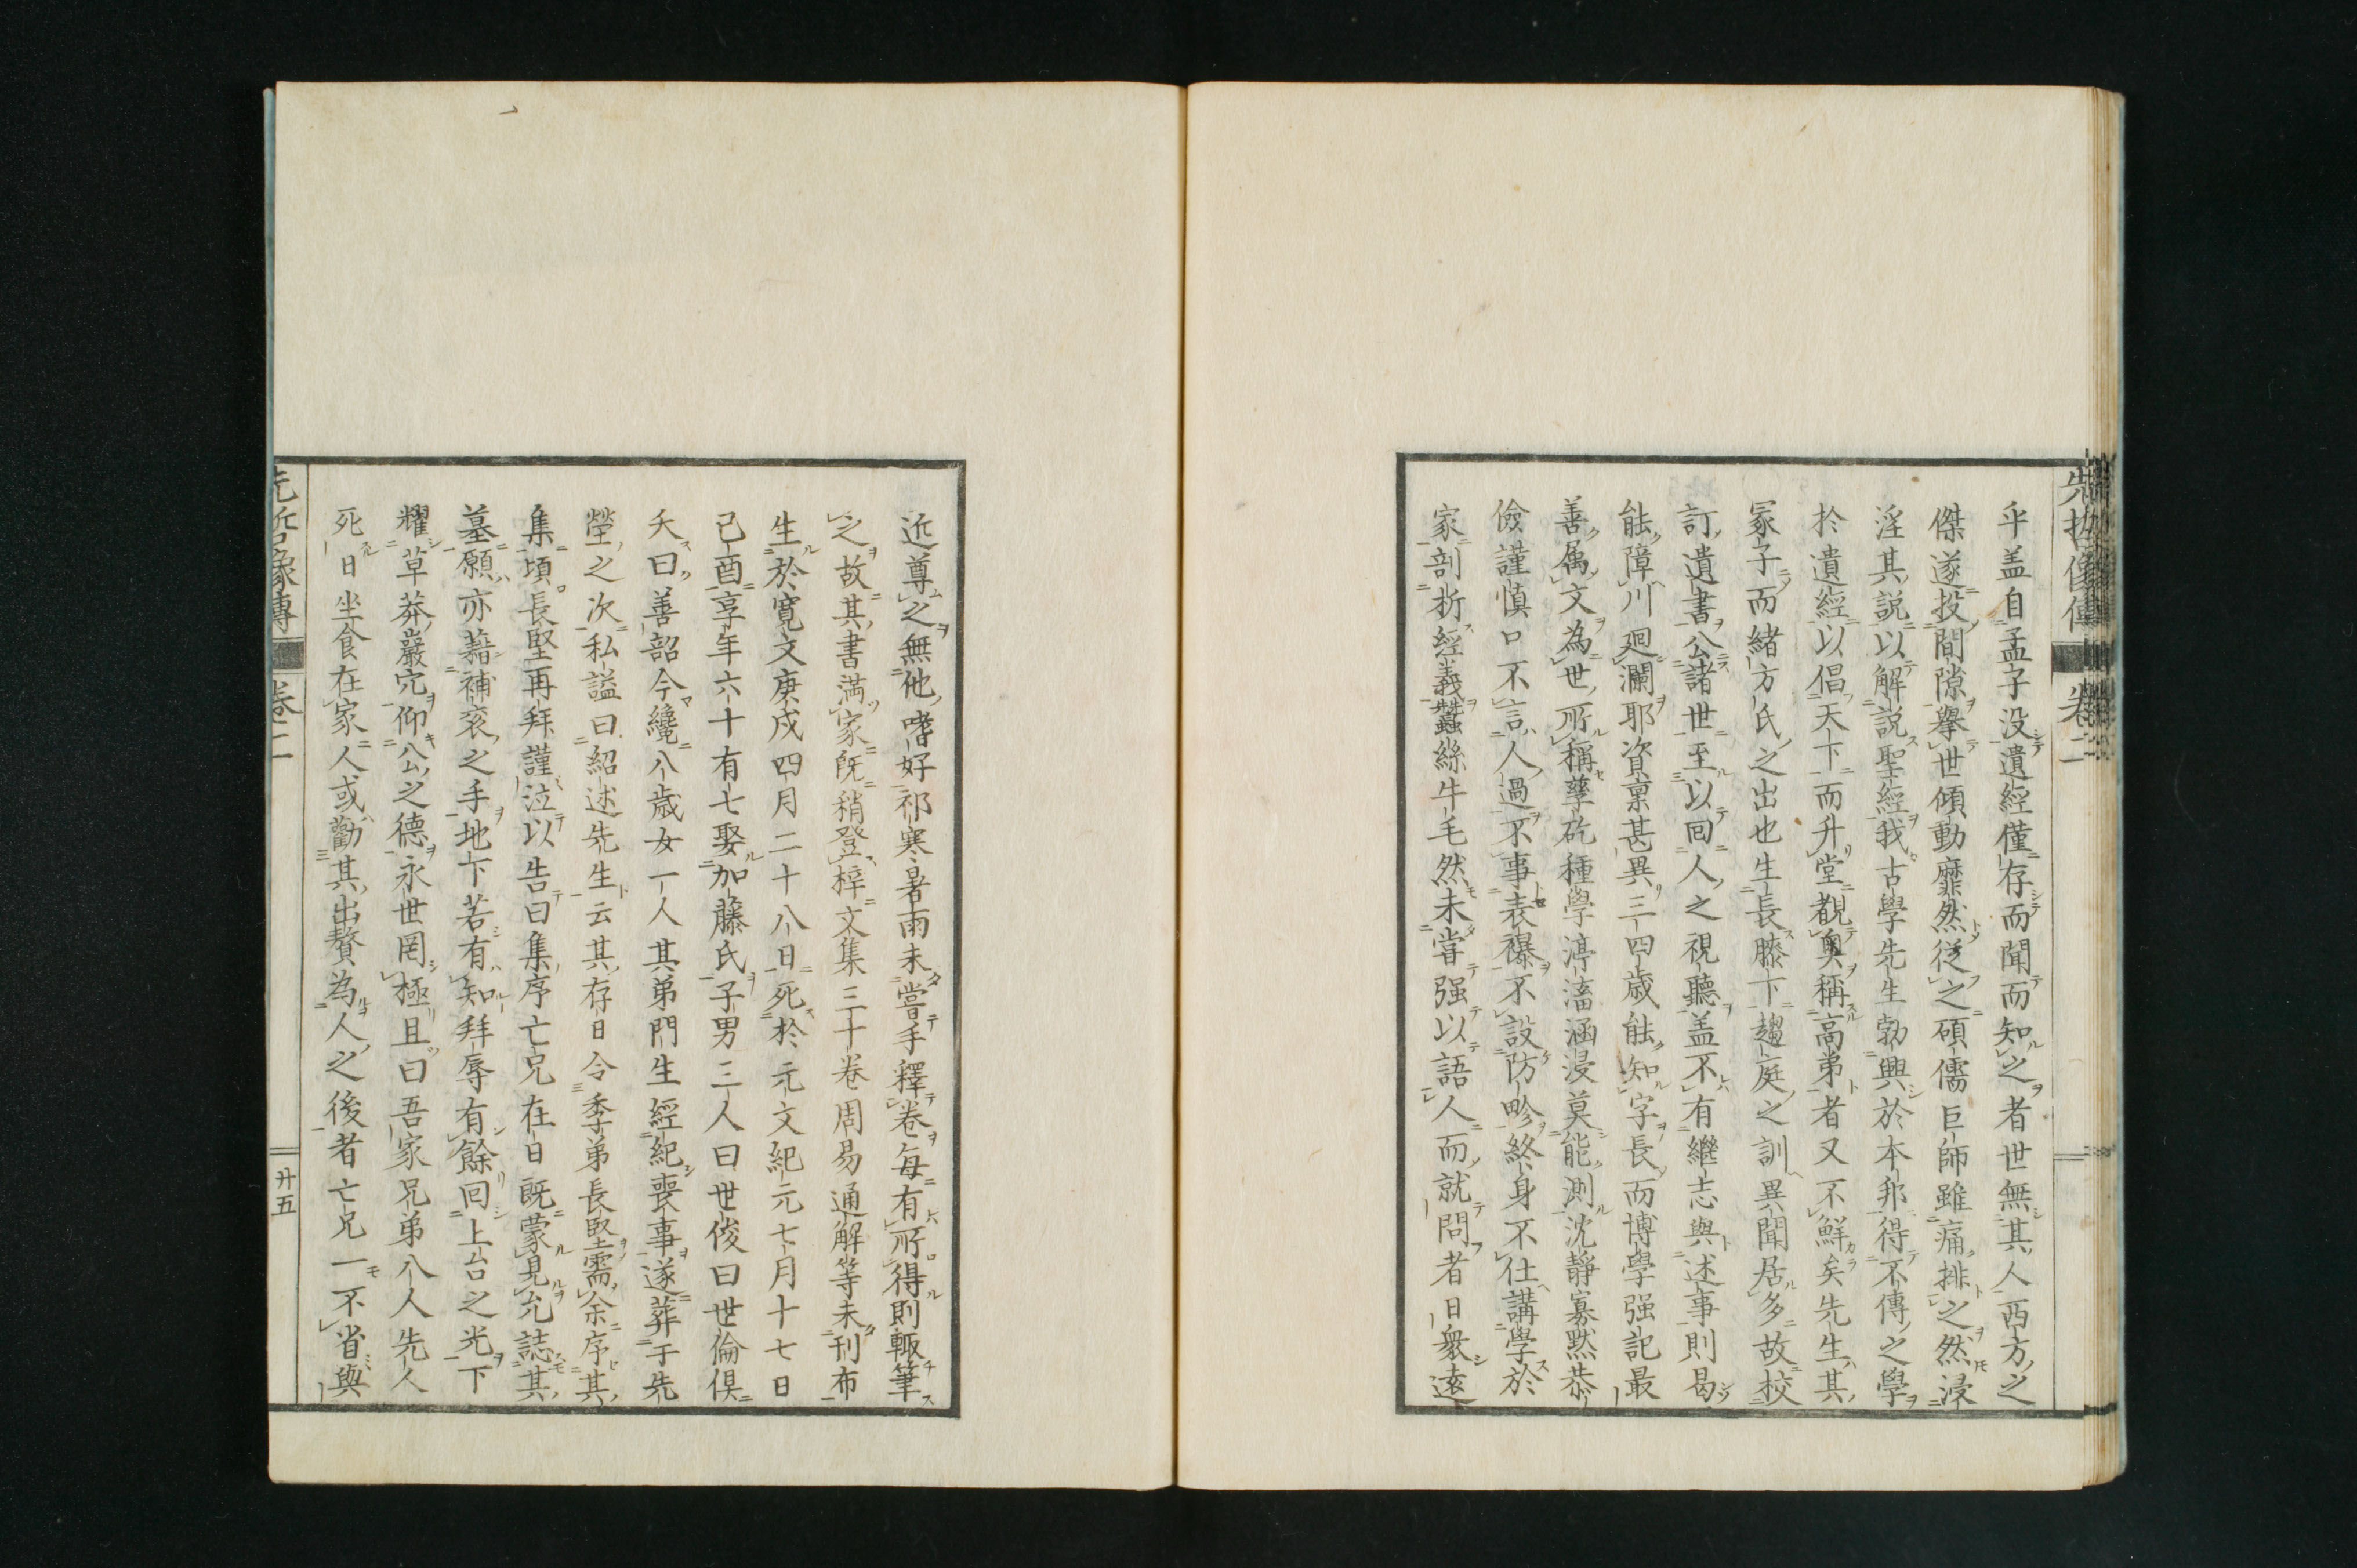 先哲像傳 卷二
乎盖自孟子没遺經僅存而聞而知之者世無其人西方之
傑遂投間隙擧世傾動靡然從之碩儒巨師雖痛排之然浸
淫其説以解説聖經我古學先生勃興於本邦得不傳之學
於遺經以倡天下而升堂覩奥稱高弟者又不鮮矣先生其
冢子而緒方氏之出也生長膝下趨庭之訓異聞居多故校
訂遺書公諸世至以回人之視聽盖不有繼志與述事則曷
能障川廻瀾耶資禀甚異三四歳能知字長而博學强記最
善属文為世所稱孳矻種學渟滀涵浸莫能測沈靜寡黙恭
儉謹慎口不言人過不事表襮不設防畛終身不仕講學於
家剖析經義蠶絲牛毛然未嘗强以語人而就問者日衆遠
近尊之無他嗜好祁寒暑雨未嘗手釋卷毎有所得則輙筆
之故其書満家既稍登梓文集三十卷周易通解等未刊布
生於寛文庚戌四月二十八日死於元文紀元七月十七日
己酉享年六十有七娶加藤氏子男三人曰世俊曰世倫倶
夭曰善韶今纔八歳女一人其弟門生經紀喪事遂葬于先
塋之次私謚曰紹述先生云其存日令季弟長堅需余序其
集頃長堅再拜謹泣以告曰集序亡兄在日既蒙見允誌其
墓願亦藉補衮之手地下若有知拜辱有餘回上台之光下
耀草莽巖穴仰公之德永世罔極且曰吾家兄弟八人先人
死日坐食在家人或勸其出贅為人之後者亡兄一不省與
先哲像傳 卷二 廿五